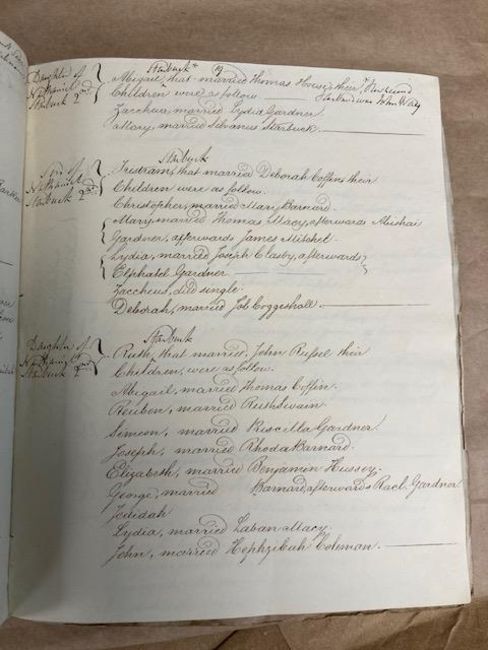 Starbuck
Daughter of
Nathaniel
Starbuck 2nd
Abigail, that married Thomas Howes, their
Children were as follow
her second
Husband was John Way
Zaccheus, married Lydia Gardner
Mary, married Silvanus Starbuck
Starbuck
Son of
Nathaniel
Starbuck 2nd
Tristram, that married Deborah Coffin, their
Children were as follow.
Christopher, married Mary Barnard
Mary married Thomas Macy, afterwards Abishai
Gardner, afterwards James Mitchel.
Lydia, married Joseph Clasby, afterwards
Eliphalet Gardner
Zaccheus, died single.
Deborah, married Job Coggeshall
Starbuck
Daughter of
Nathaniel
Starbuck 2nd
Ruth, that married, John Russel their
Children, were as follow.
Abigail, married Thomas Coffin.
Reuben, married Ruth Swain
Simeon, married Priscilla Gardner
Joseph, married Rhoda Barnard.
Elizabeth, married Benjamin Hussey.
George, married Barnard, afterwards Racl. Gardner
Jedidah
Lydia, married Laban Macy
John, married Hephzibah Coleman.